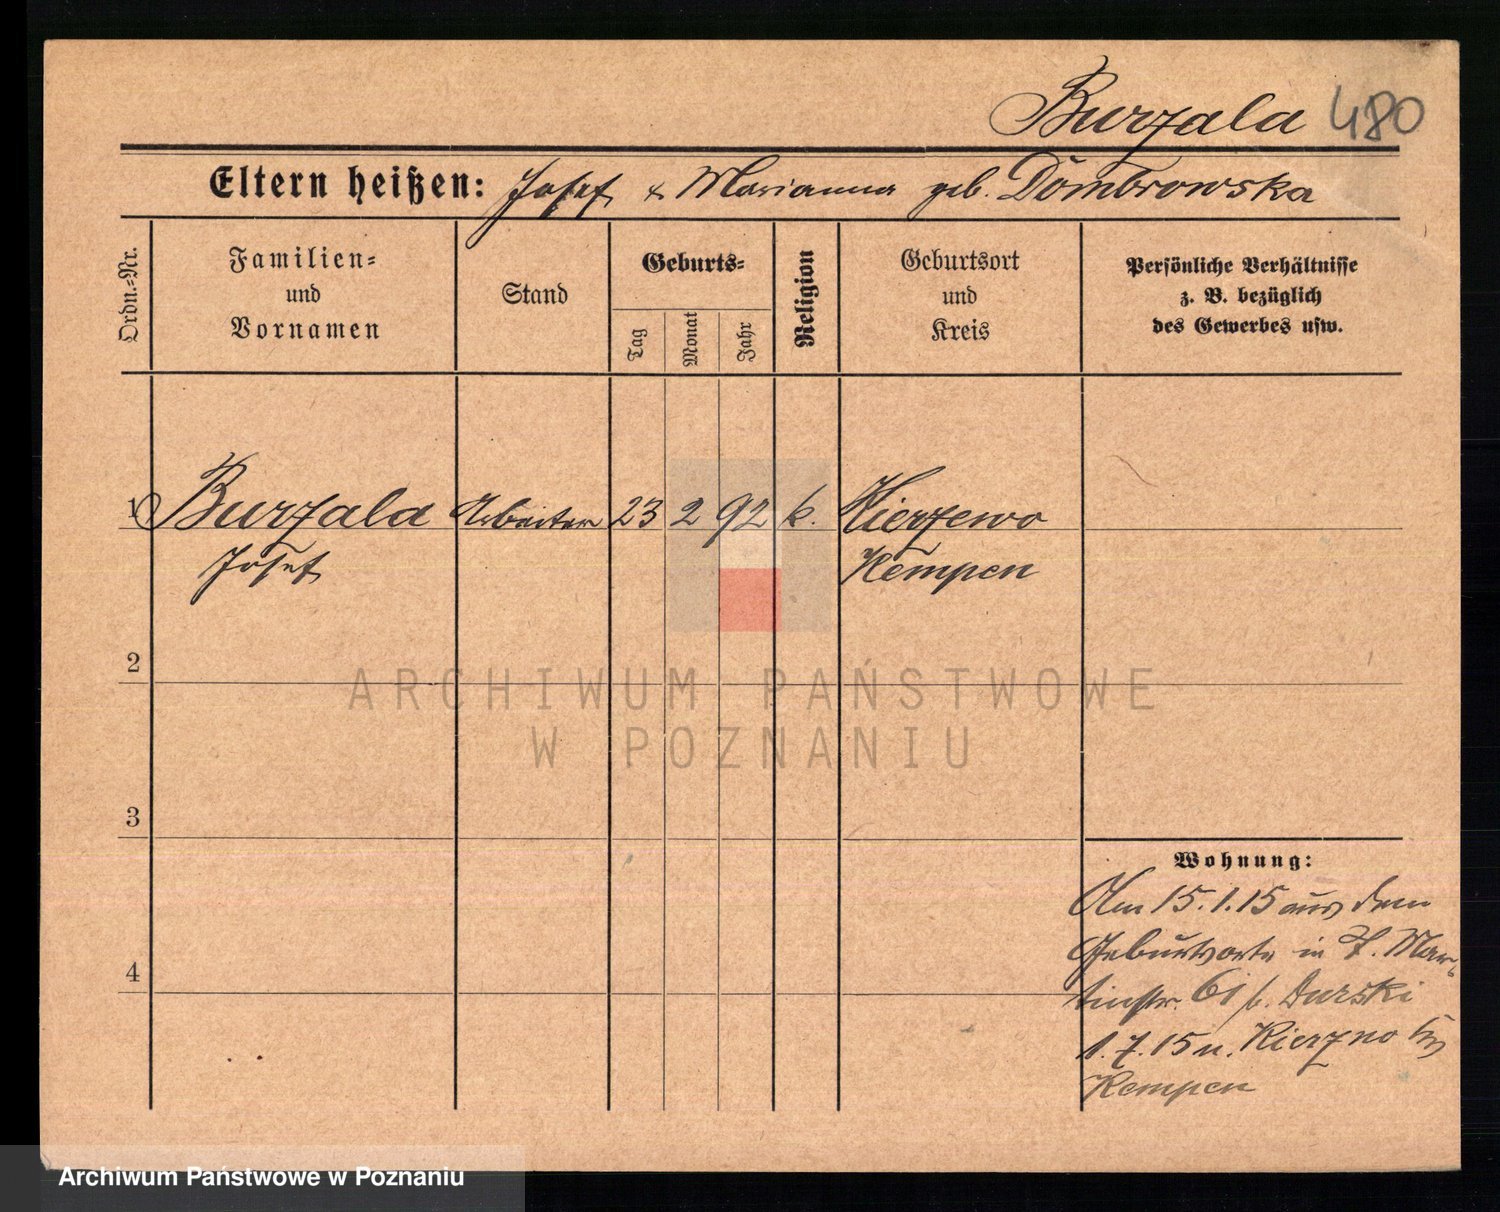 Burzala 480
Eltern heißen: Josef & Marianna geb. Dombrowska
Ordn.-Nr.
Familien- und Vornamen
Stand
Geburts-
Tag
Monat
Jahr
Religion
Geburtsort und Kreis
Persönliche Verhältnisse
z. B. bezüglich
des Gewerbes usw.
1 Burzala Arbeiter 23 2 92 k. Kierzewo
Josef Kempen
2
ARCHIWUM PAŃSTWOWE
W POZNANIU
3
Wohnung:
Am 15.1.15 aus dem
Geburtsorte in P. Mar-
tinstr. 61 b. Durski
4
1.7.15 n. Kierzno
Kempen
Archiwum Państwowe w Poznaniu